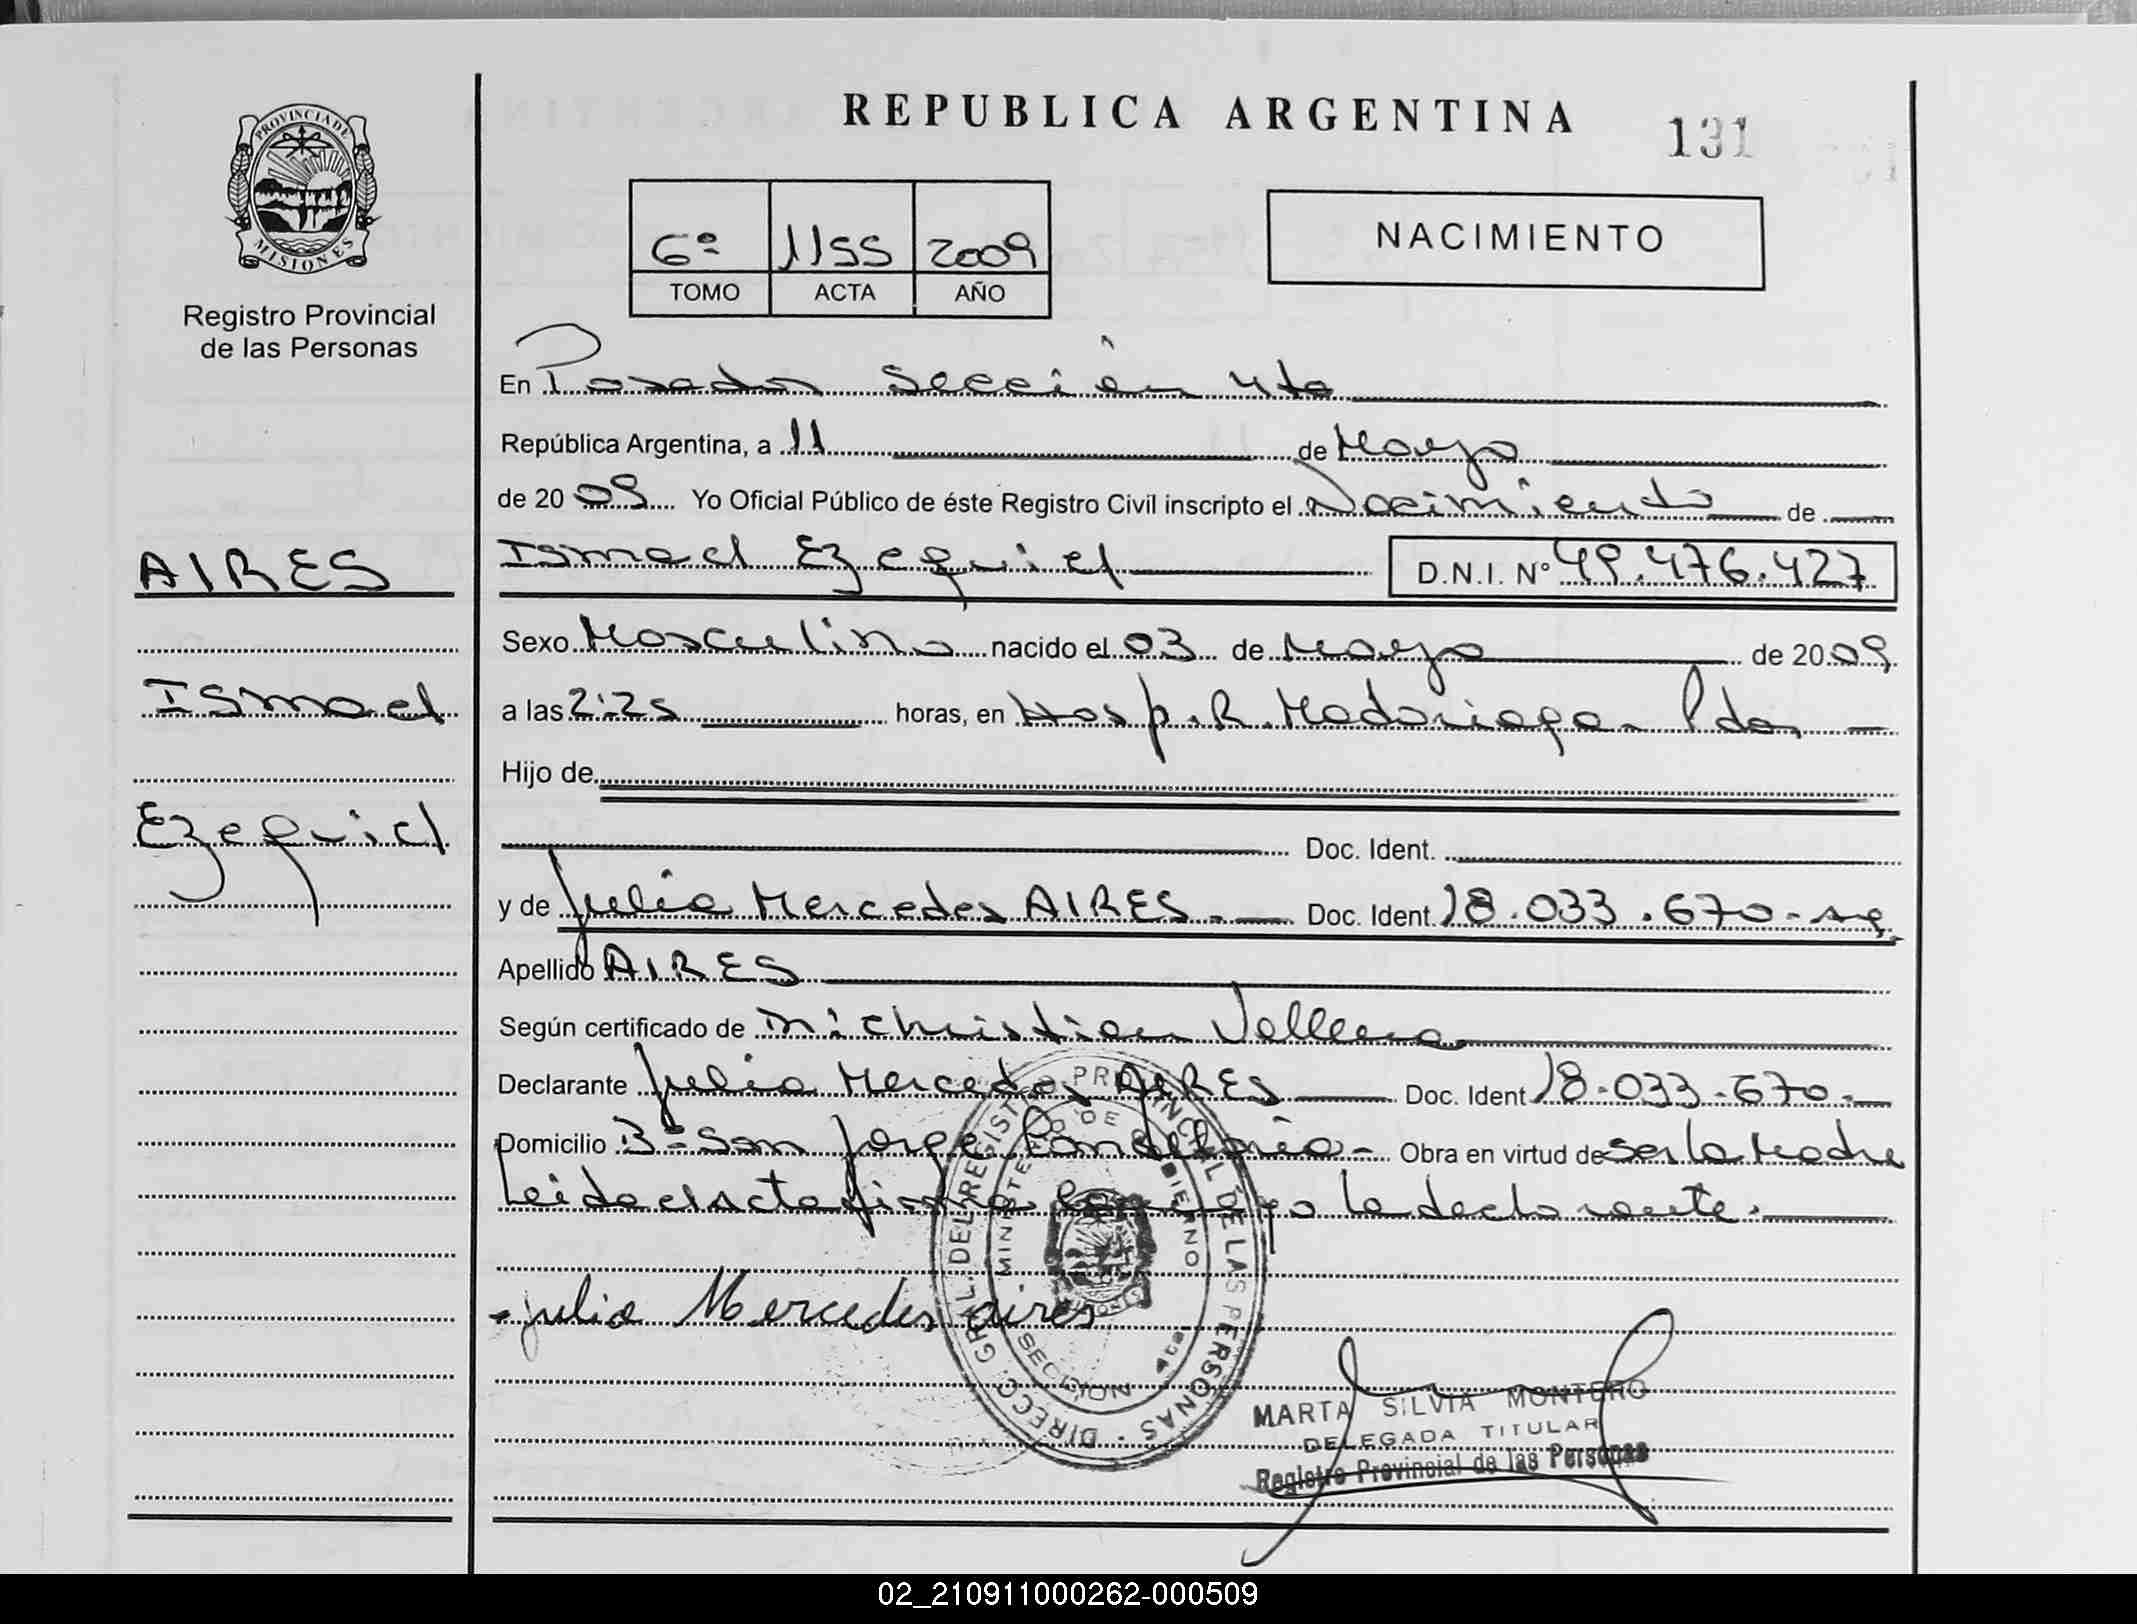 REPUBLICA ARGENTINA
131
PROVINCIA DE
MISIONES
Registro Provincial
de las Personas
6º 1155 2009
TOMO ACTA AÑO
NACIMIENTO
En Posadas Sección 4ta
República Argentina, a 11 de Mayo
de 20 09 Yo Oficial Público de éste Registro Civil inscripto el Nacimiento de
AIRES
Ismael
Ezequiel
Ismael Ezequiel D.N.I. Nº 49.476.427
Sexo Masculino nacido el 03 de Mayo de 20 09
a las 2:25 horas, en Hosp. R. Madariaga - Pdas, -
Hijo de
Doc. Ident.
y de Julia Mercedes AIRES. - Doc. Ident. 18.033.670-
Apellido AIRES
Según certificado de christian
Declarante Julia Mercedes AIRES Doc. Ident 18.033.670.-
Domicilio Bº San Jorge Candelaria - Obra en virtud de ser la Madre
Leida el acta firma conmigo la declarante.
- julia Mercedes aires
DIRECC. GRAL. DEL REGISTRO PROVINCIAL DE LAS PERSONAS
MINISTERIO DE GOBIERNO
SECCION 4ta
MARTA SILVIA MONTERO
DELEGADA TITULAR
Registro Provincial de las Personas
02_210911000262-000509